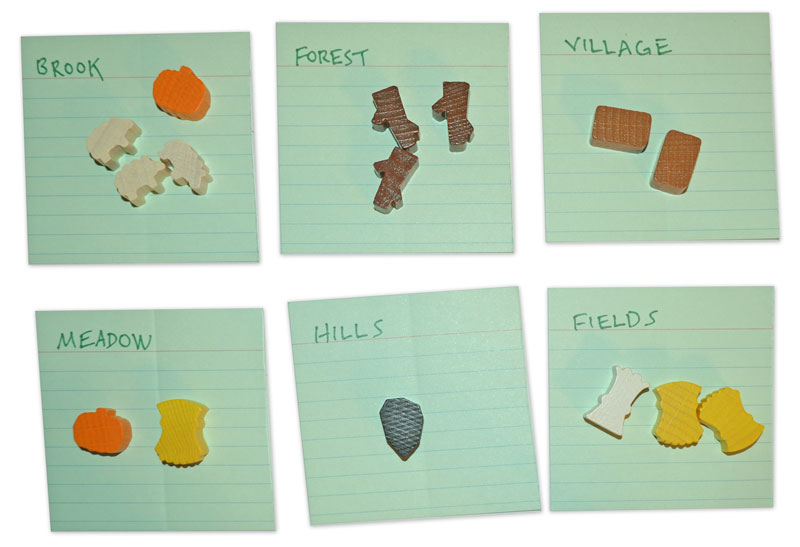 BROOK
FOREST
VILLAGE
MEADOW
HILLS
FIELDS